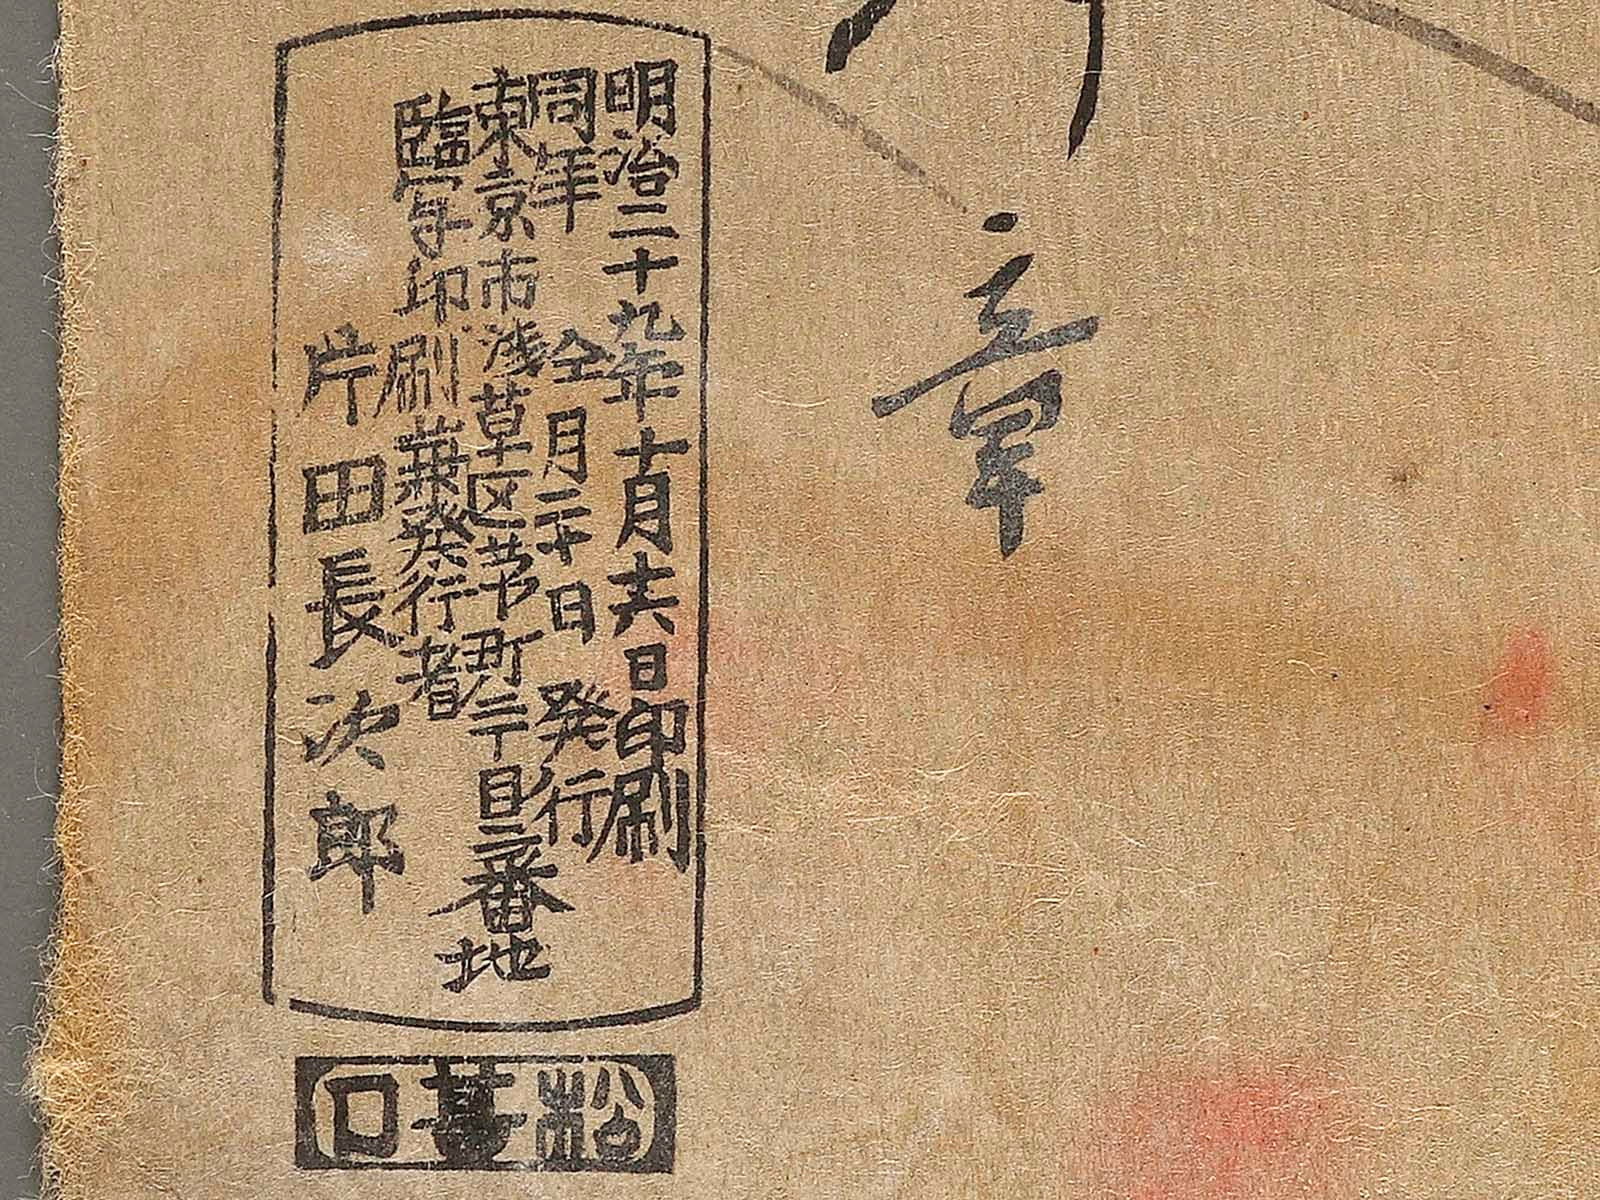 章
明治二十九年十月十六日印刷
同年全月二十日発行
東京市浅草区茅町二丁目二番地
臨写印刷兼発行者
片田長次郎
松 口